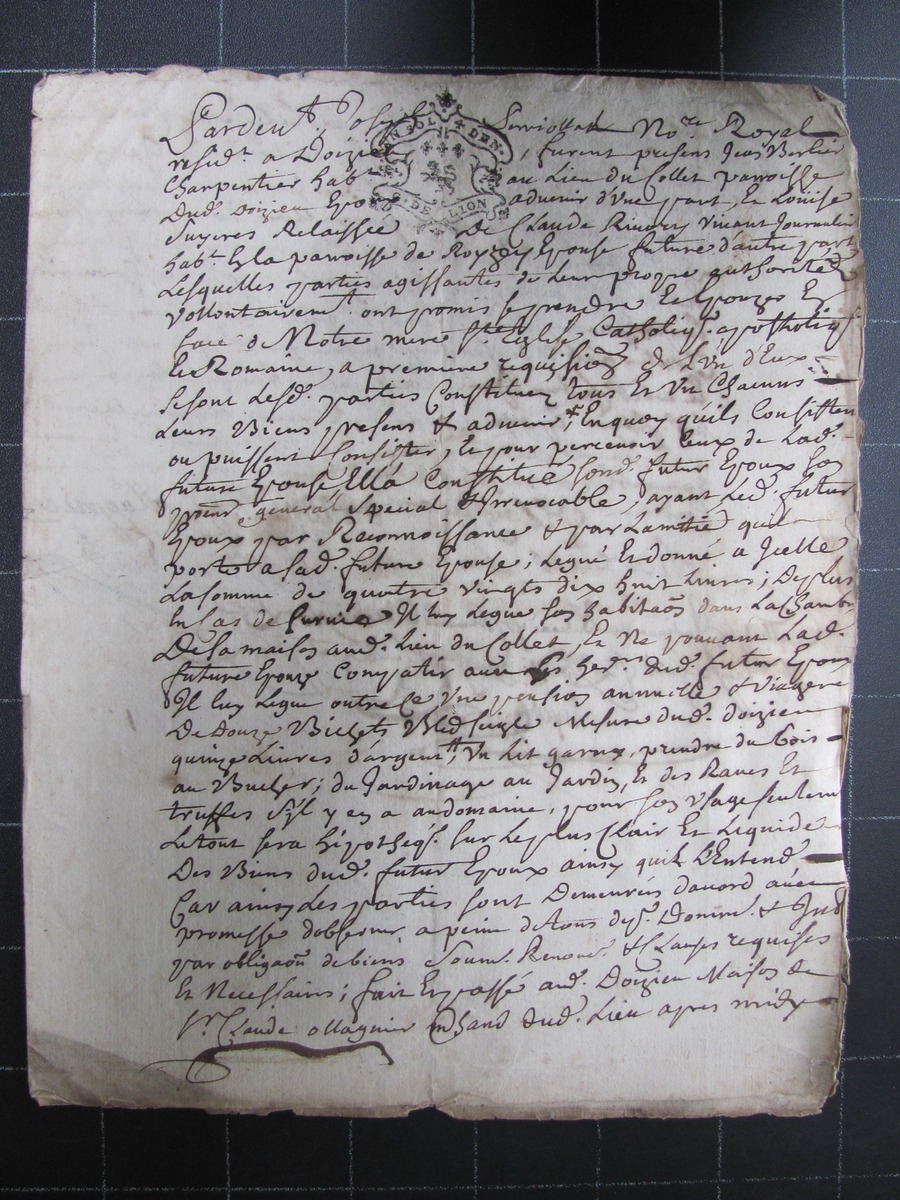 Pardevt Joseph Serviollat Nore Royal
residt a Doizieu, furent presens Jean Berlier
Charpentier habt au Lieu du Collet paroisse
Dud. Doizieu Epoux advenir d'Une part, Et Louise
De Claude vivant Journalier
habt En la paroisse de Epouse future d'autre part
Lesquelles parties agissantes de Leur propre authorité &
vollontairemt ont promis se prendre Et Epouzer En
face de Notre mere Ste Eglise Catholiq. apostholiq.
Et Romaine, a premiere requisition de L'Un d'Eux
Se sont Lesd. parties Constituez tous Et Un Chacuns
Leurs Biens presens & advenir, En quoy qu'ils Consistent
ou puissent Consister, Et pour percevoir Ceux de Lad.
future Epouse Ella Constitue Sond. futur Epoux Son
procur general Special & Irrevocable, ayant Led. futur
Epoux par Reconnoissance & par Lamitié quil
porte a Sad. future Epouse; Legué Et donné a Icelle
La Somme de quatre vingts dix huit Livres; De plus
En Cas de Survie Il luy Legue Son habitaon dans La Chambre
De Sa maison aud. Lieu du Collet, Et Ne pouvant Lad.
future Epouze Compatir avec les hers. dud. futur Epoux
Il luy Legue outre Ce Une pension annuelle & Viagere
De Douze Bichets Bled Seigle Mesure dud. doizieu
quinze Livres d'argent, Un Lit garny, prendre du bois
au Bucher; du Jardinage au Jardin, Et des Raves Et
truffes S'il y en a au domaine, pour Son Usage seulemt
Le tout Sera hipothéq. Sur Le plus Clair Et Liquide
Des Biens dud. futur Epoux ainsy quil L'Entend
Car ainsy Les parties Sont Demeurées daccord avec
promesse d'observer a peine de tous dep. Domm. &
par obligaon de biens Soum. Renonc. & Clauses requises
Et Necessaires; fait Et passé aud. Doizieu Maison de
Sr. Claude ollagnier mchand dud. Lieu apres midy
GEN SOL DEN.
G. DE LION